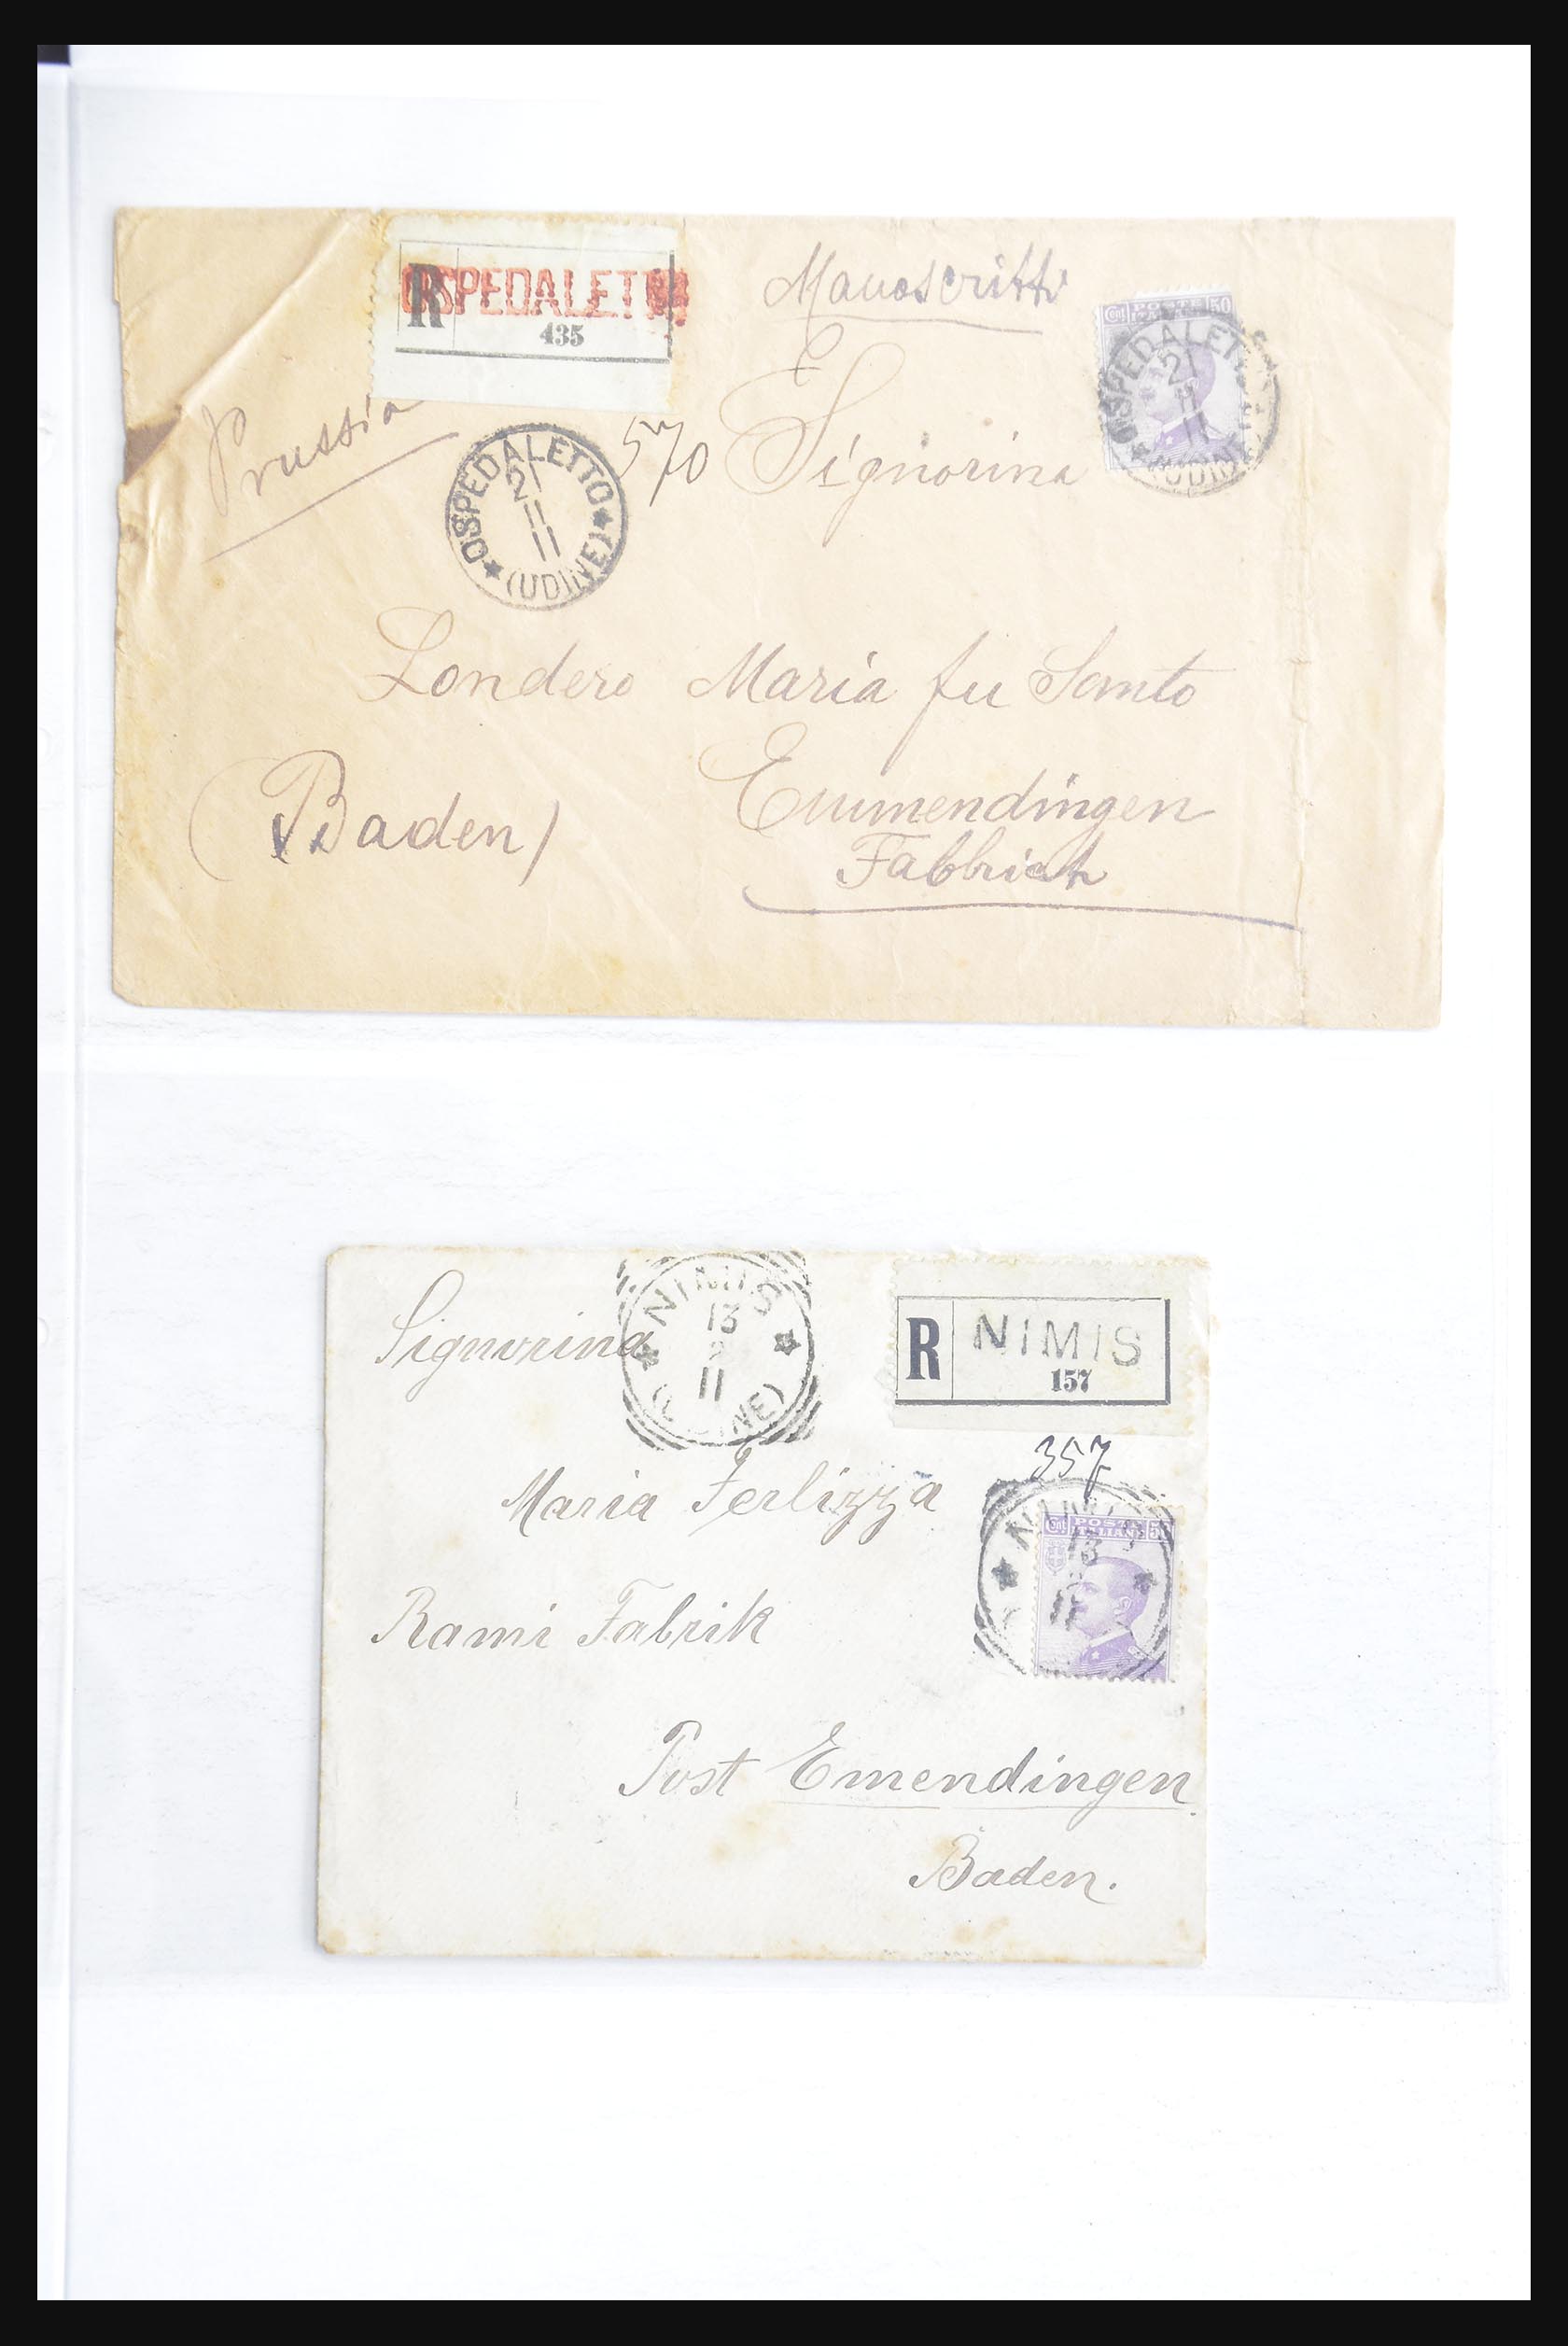 Manoscritti
R OSPEDALETTO
435
Cent. POSTE 50
ITALIANE
OSPEDALETTO
21
11
11
(UDINE)
Prussia
570 Signorina
OSPEDALETTO
21
11
11
(UDINE)
Londero Maria fu Santo
(Baden)
Emmendingen
Fabbrich
NIMIS
13
2
11
(UDINE)
R NIMIS
157
Signorina
357
Maria Ferlizza
NIMIS
13
2
11
Cent. POSTE 5
ITALIANE
Rami Fabrik
Post Emendingen
Baden.